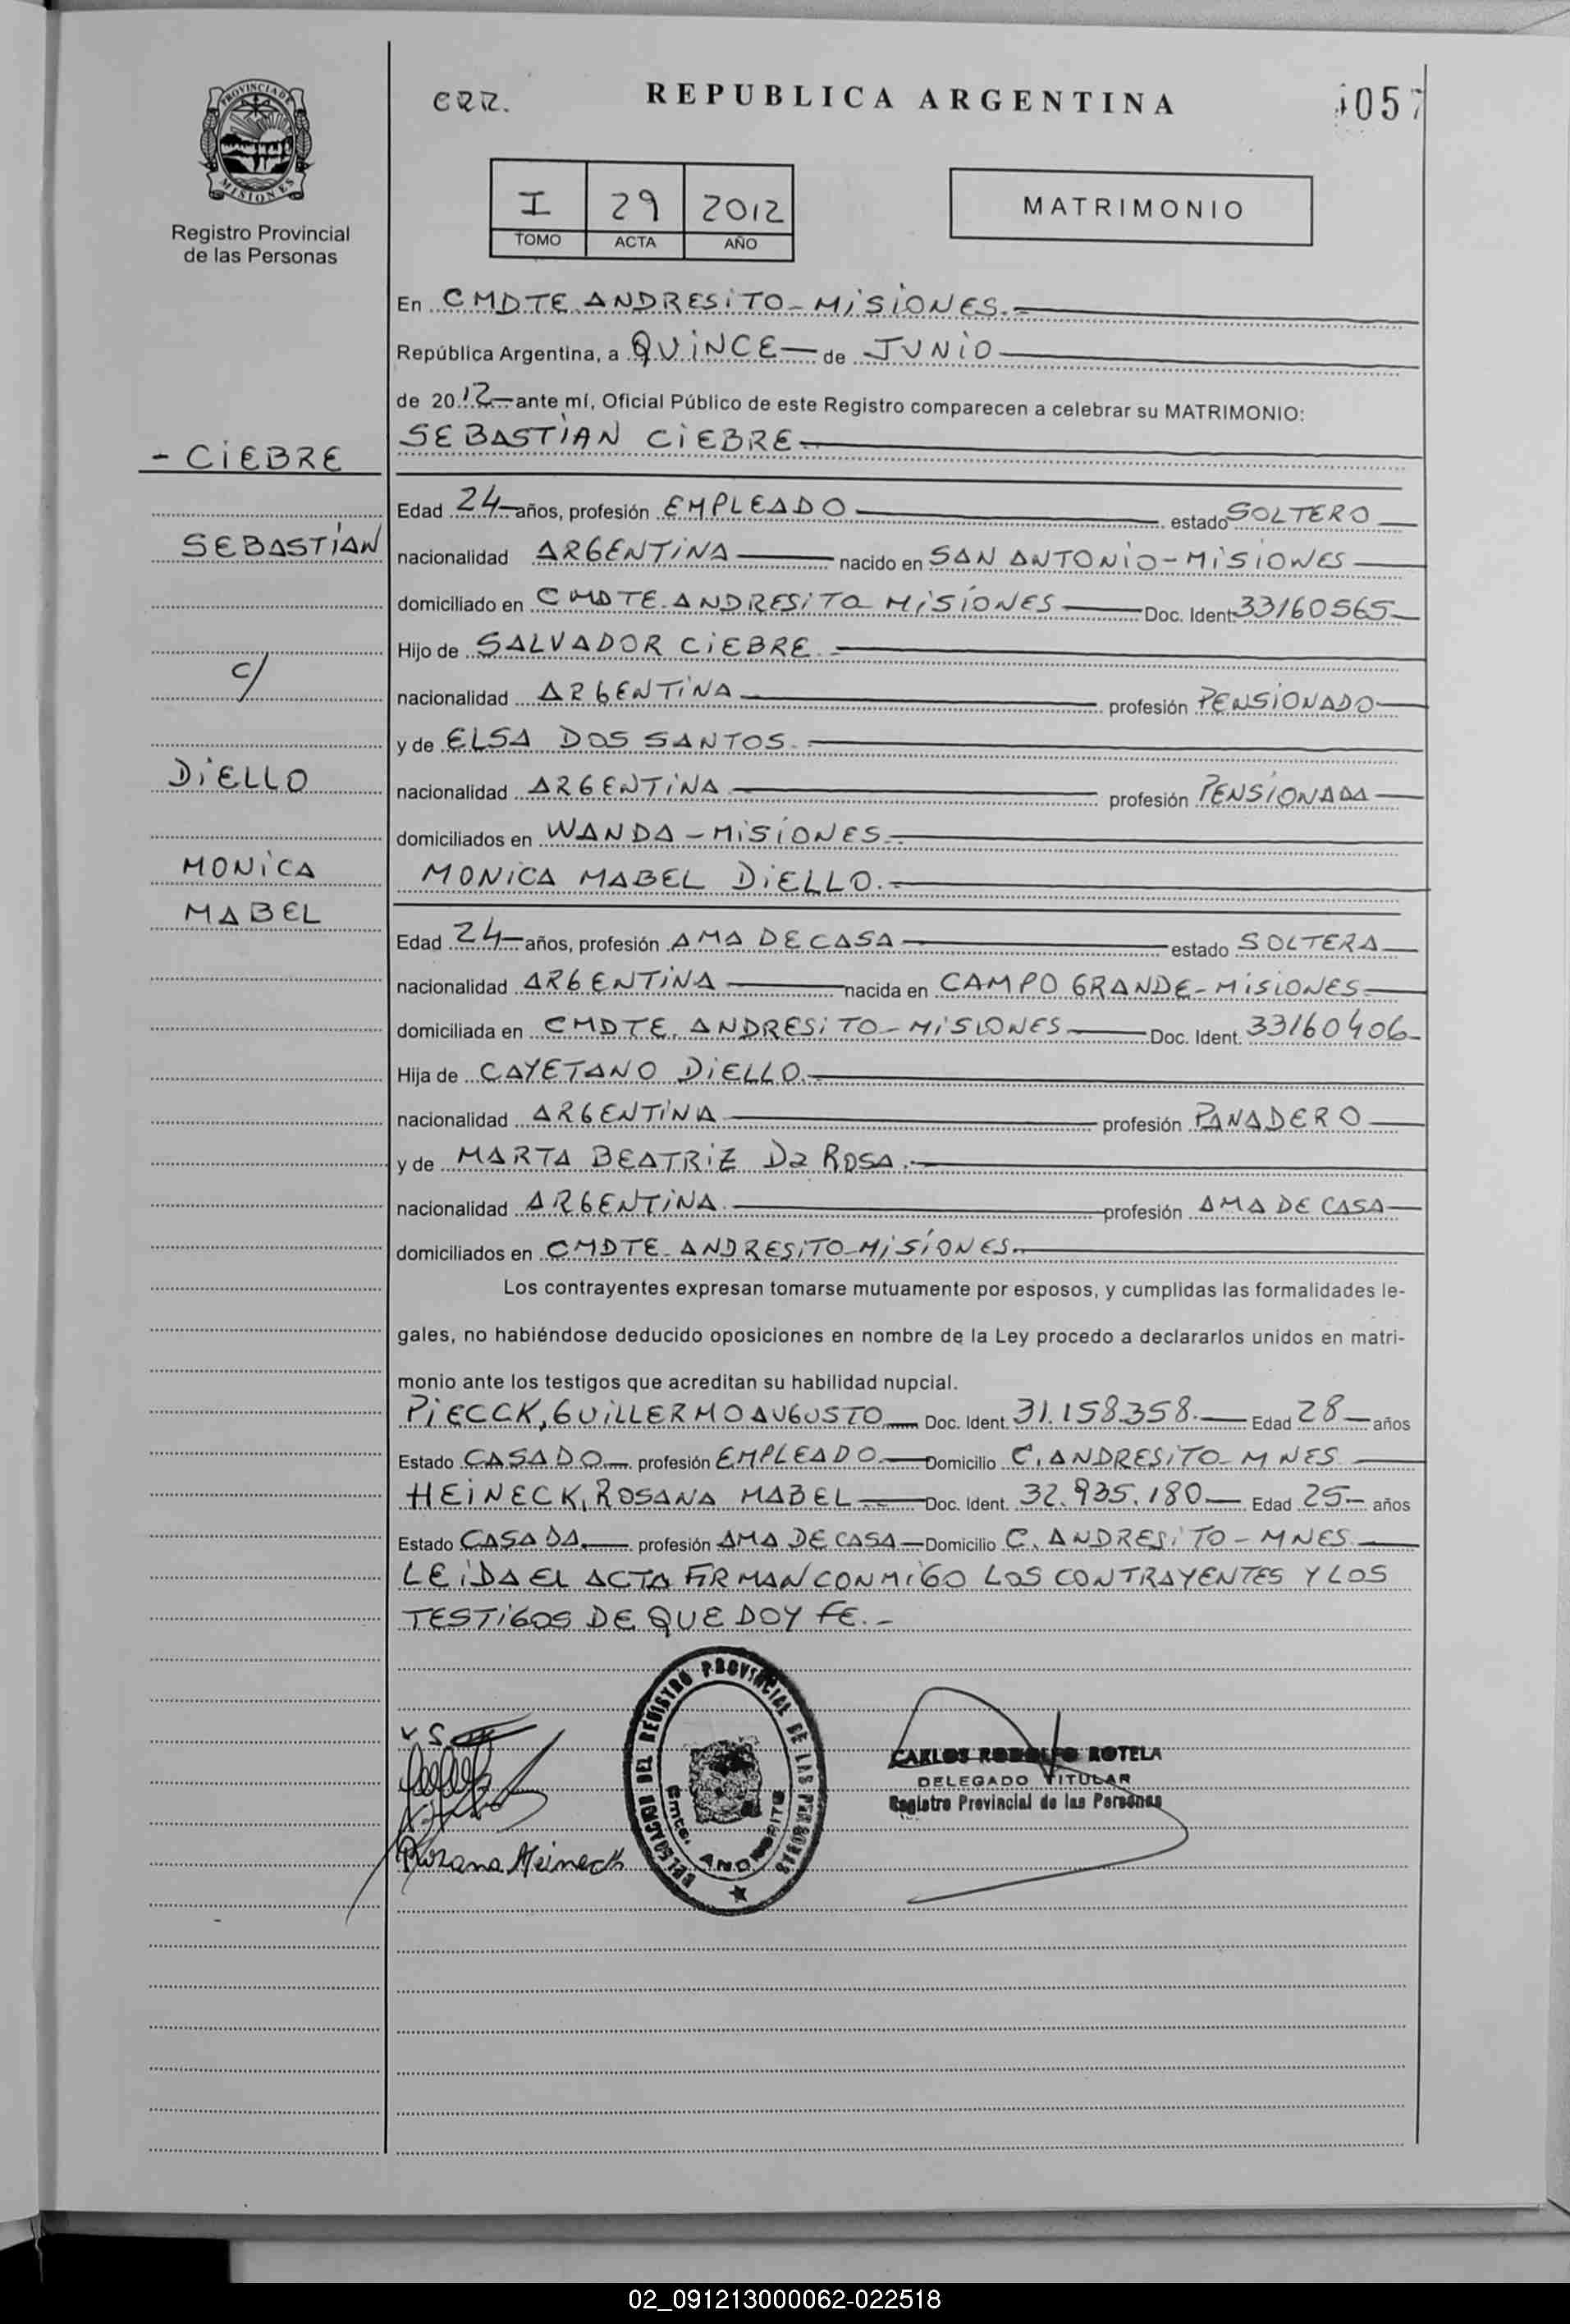 PROVINCIA DE
MISIONES
Registro Provincial
de las Personas
REPUBLICA ARGENTINA
057
I 29 2012
TOMO ACTA AÑO
MATRIMONIO
En CMDTE. ANDRESiTO - MiSiONES.-
República Argentina, a QUiNCE de JUNiO
de 2012 ante mí, Oficial Público de este Registro comparecen a celebrar su MATRIMONIO:
SEBASTIAN CiEBRE
- CiEBRE
Edad 24 años, profesión EMPLEADO estado SOLTERO
SEBASTIAN
nacionalidad ARGENTiNA nacido en SAN ANTONiO - MiSiONES
domiciliado en CMDTE. ANDRESiTO MiSiONES Doc. Ident. 33160565
Hijo de SALVADOR CiEBRE.
c/
nacionalidad ARGENTiNA profesión PENSiONADO
y de ELSA DOS SANTOS.
DiELLO
nacionalidad ARGENTiNA profesión PENSiONADA
domiciliados en WANDA - MiSiONES.-
MONiCA
MONiCA MABEL DiELLO.-
MABEL
Edad 24 años, profesión AMA DE CASA estado SOLTERA
nacionalidad ARGENTiNA nacida en CAMPO GRANDE - MiSiONES
domiciliada en CMDTE. ANDRESiTO - MiSiONES Doc. Ident. 33160406
Hija de CAYETANO DiELLO.-
nacionalidad ARGENTiNA profesión PANADERO
y de MARTA BEATRiZ Da ROSA.-
nacionalidad ARGENTiNA. profesión AMA DE CASA
domiciliados en CMDTE. ANDRESiTO - MiSiONES.
Los contrayentes expresan tomarse mutuamente por esposos, y cumplidas las formalidades le-
gales, no habiéndose deducido oposiciones en nombre de la Ley procedo a declararlos unidos en matri-
monio ante los testigos que acreditan su habilidad nupcial.
PiECCK, GUiLLERMO AUGUSTO Doc. Ident. 31.158.358. Edad 28 años
Estado CASADO. profesión EMPLEADO. Domicilio C. ANDRESiTO - MNES
HEiNECK, ROSANA MABEL Doc. Ident. 32.935.180 Edad 25 años
Estado CASADA. profesión AMA DE CASA Domicilio C. ANDRESiTO - MNES.
LEiDA EL ACTA FiRMAN CONMiGO LOS CONTRAYENTES Y LOS
TESTiGOS DE QUE DOY FE.-
DELEGACION DEL REGISTRO PROVINCIAL DE LAS PERSONAS
Cmte. ANDRESITO
CARLOS RODOLFO ROTELA
DELEGADO TITULAR
Registro Provincial de las Personas
Rosana Heineck
02_091213000062-022518